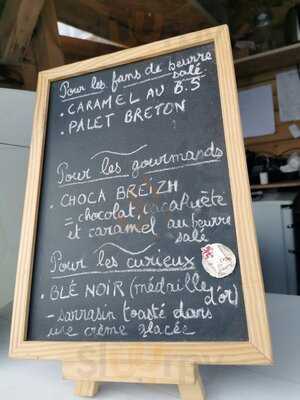 Pour les fans de beurre
salé
. CARAMEL AU B.S
. PALET BRETON
Pour les gourmands
. CHOCA BREIZH
= chocolat, cacahuète
et caramel au beurre
salé
Pour les curieux
. BLÉ NOIR (médaille
d'or)
- sarrasin toasté dans
une crème glacée